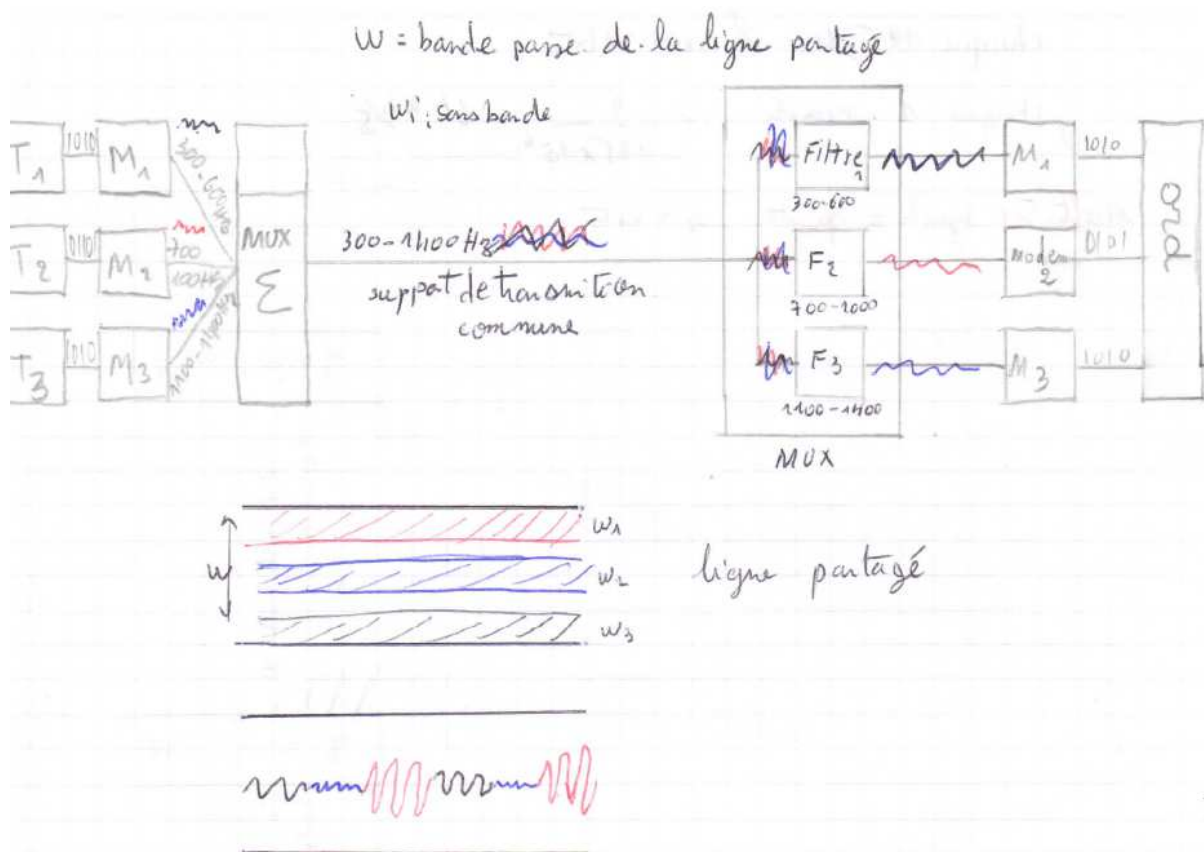 W = bande passe de la ligne partagé
wi : sous bande
T1 1010 M1 300-600Hz
MUX
Σ
T2 0110 M2 700
T3 1010 M3 1100-1400Hz
300-1400Hz
support de transmition
commune
Filtre 1
300-600
M1 1010
F2
700-1000
modem 2 0101
F3
1100-1400
M3 1010
ord
MUX
W
w1
w2
w3
ligne partagé